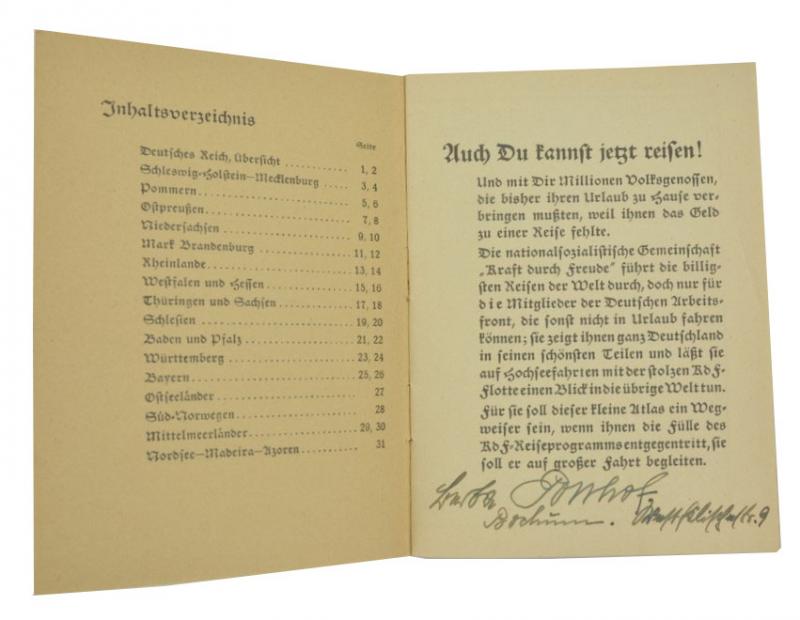 Inhaltsverzeichnis
Seite
Deutsches Reich, Übersicht .......... 1, 2
Schleswig-Holstein—Mecklenburg ....... 3, 4
Pommern .......... 5, 6
Ostpreußen .......... 7, 8
Niedersachsen .......... 9, 10
Mark Brandenburg .......... 11, 12
Rheinlande .......... 13, 14
Westfalen und Hessen .......... 15, 16
Thüringen und Sachsen .......... 17, 18
Schlesien .......... 19, 20
Baden und Pfalz .......... 21, 22
Württemberg .......... 23, 24
Bayern .......... 25, 26
Ostseeländer .......... 27
Süd-Norwegen .......... 28
Mittelmeerländer .......... 29, 30
Nordsee—Madeira—Azoren .......... 31
Auch Du kannst jetzt reisen!
Und mit Dir Millionen Volksgenossen,
die bisher ihren Urlaub zu Hause ver-
bringen mußten, weil ihnen das Geld
zu einer Reise fehlte.
Die nationalsozialistische Gemeinschaft
„Kraft durch Freude“ führt die billig-
sten Reisen der Welt durch, doch nur für
die Mitglieder der Deutschen Arbeits-
front, die sonst nicht in Urlaub fahren
können; sie zeigt ihnen ganz Deutschland
in seinen schönsten Teilen und läßt sie
auf Hochseefahrten mit der stolzen KdF-
Flotte einen Blick in die übrige Welt tun.
Für sie soll dieser kleine Atlas ein Weg-
weiser sein, wenn ihnen die Fülle des
KdF-Reiseprogramms entgegentritt, sie
soll er auf großer Fahrt begleiten.
Bochum. Westfälischestr. 9